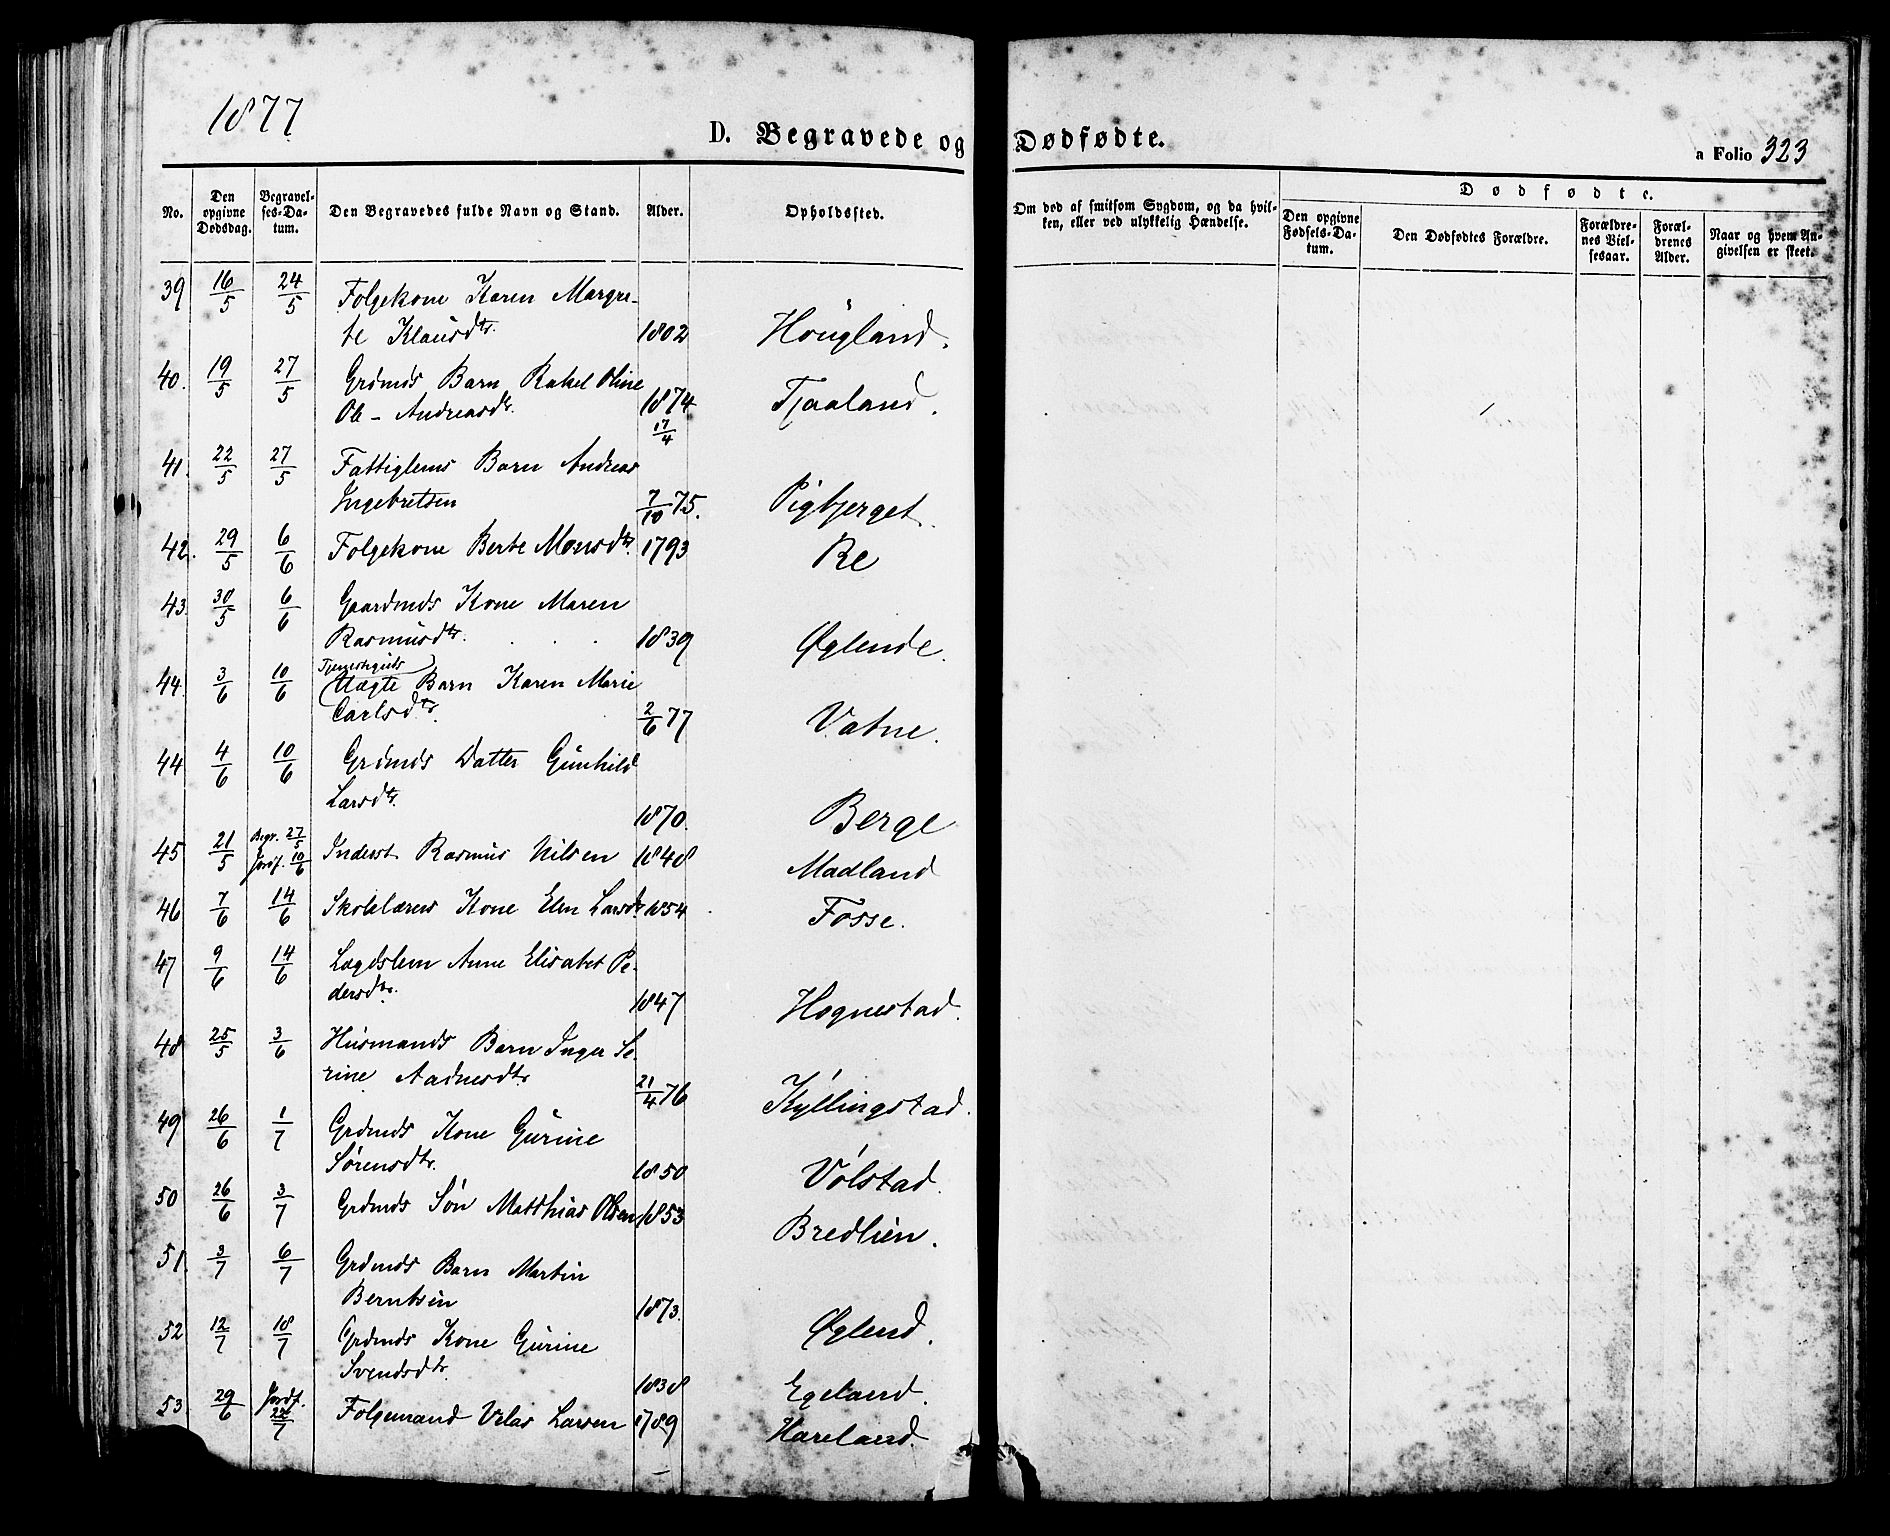 1877
D. Begravede og Dødfødte.
a Folio 323
No.
Den opgivne Dødsdag.
Begravel-
ses-Da-
tum.
Den Begravedes fulde Navn og Stand.
Alder.
Opholdssted.
Om død af smitsom Sygdom, og da hvil-
ken, eller ved ulykkelig Hændelse.
Dødfødte.
Den opgivne
Fødsels-Da-
tum.
Den Dødfødtes Forældre.
Forældre-
nes Viel-
sesaar.
Foræl-
drenes
Alder.
Naar og hvem An-
givelsen er skeet.
39 16/5 24/5 Folgekone Karen Margre-
te Klausdtr. 1802 Hougland.
40. 19/5 27/5 Grdmds Barn Rakel Oline
Ole-Andreasdtr. 1874 17/4 Tjaaland.
41. 22/5 27/5 Fattiglems Barn Andreas
Ingebretsen 7/10 75. Pigbjerget.
42. 29/5 6/6 Folgekone Berte Monsdtr. 1793 Re
43. 30/5 6/6 Gaardmds Kone Maren
Rasmusdtr. 1839 Øglende.
Tjenestepiges
44. 3/6 10/6 Uægte Barn Karen Marie
Carlsdtr. 2/6 77 Vatne.
44 4/6 10/6 Grdmds Datter Gunhild
Larsdtr. 1870. Berge
45 21/5 Begr. 27/5 Jordf. 10/6 Inderst Rasmus Nilsen 1848 Madland
46 7/6 14/6 Skolelærers Kone Elen Larsdtr. 1854 Fosse.
47 9/6 14/6 Lægdslem Anne Elisabet Pe-
dersdtr. 1847 Hognestad.
48 25/5 3/6 Husmands Barn Inger Se-
rine Aadnesdtr. 21/4 76 Kyllingstad.
49 26/6 1/7 Grdmds Kone Gurine
Sørensdtr. 1850 Volstad.
50 26/6 3/7 Grdmds Søn Matthias Olsen 1853 Bredlien.
51. 3/7 6/7 Grdmds Barn Martin
Berntsen 1873. Øglend.
52 12/7 18/7 Grdmds Kone Gurine
Svendsdtr. 1838 Egeland.
53. 29/6 Jordf. 22/7 Folgemand Velas Larsen 1789 Hareland.